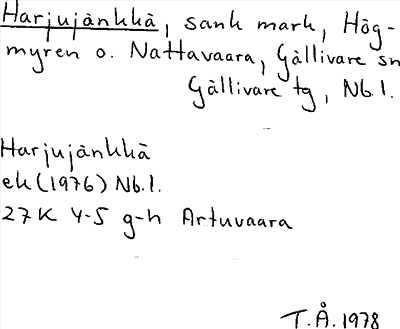 Harjujänkkä, sank mark, Hög-
myren o. Nattavaara, Gällivare sn
Gällivare tg, Nb.l.
Harjujänkkä
ek (1976) Nb.l.
27K 4-5 g-h Artuvaara
T.Å. 1978